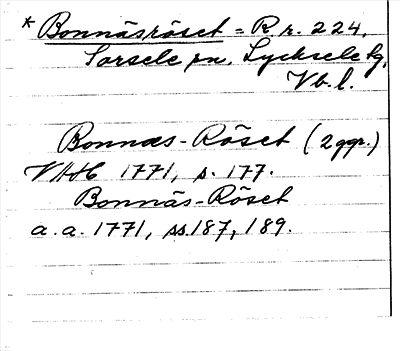 * Bonnäsröset = R r. 224,
Sorsele sn, Lycksele tg,
Vb. l.
Bonnæs-Röset (2 ggr.)
VAH 1771, s. 177.
Bonnäs-Röset
a.a. 1771, ss. 187, 189.